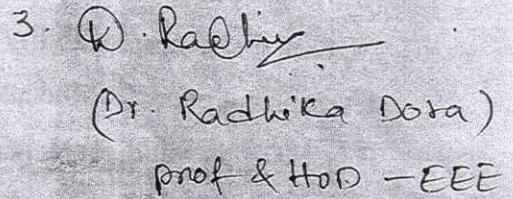 3. D. Radhi
(Dr. Radhika Dora)
Prof & HOD - EEE